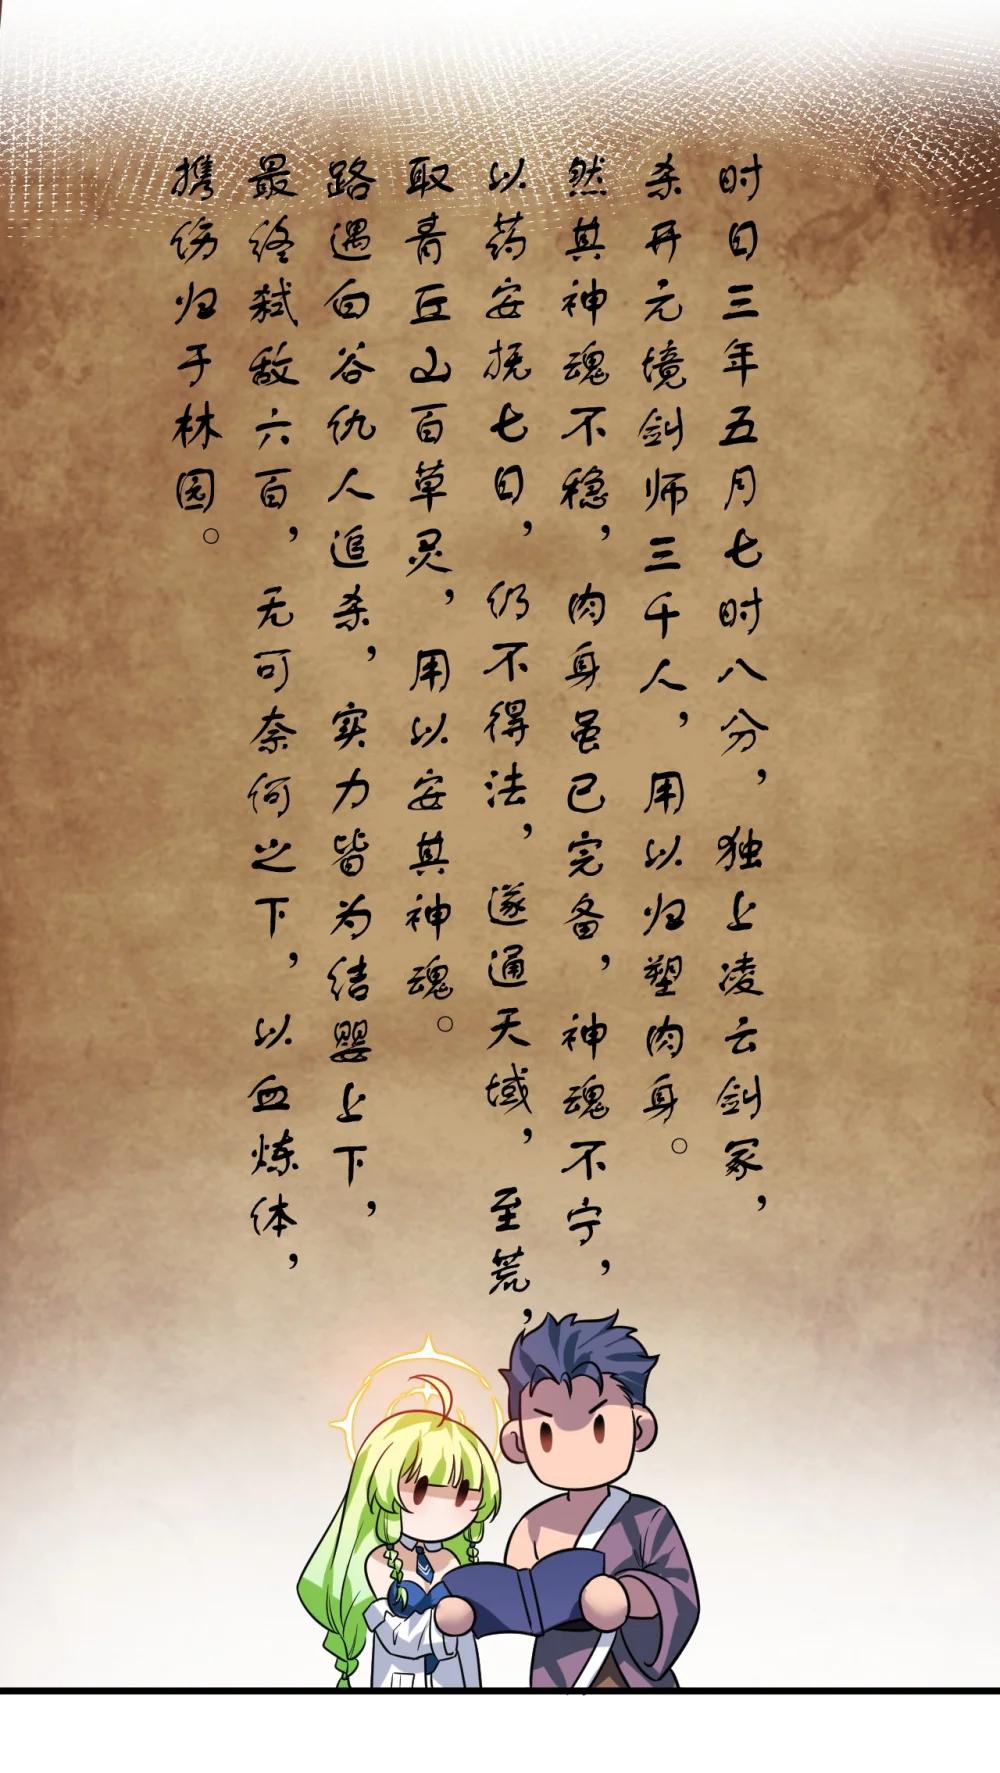 时日三年五月七时八分，独上凌云剑冢，
杀开元境剑师三千人，用以归塑肉身。
然其神魂不稳，肉身虽已完备，神魂不宁，
以药安抚七日，仍不得法，遂通天域，至荒，
取青丘山百草灵，用以安其神魂。
路遇白谷仇人追杀，实力皆为结婴上下，
最终弑敌六百，无可奈何之下，以血炼体，
携伤归于林园。